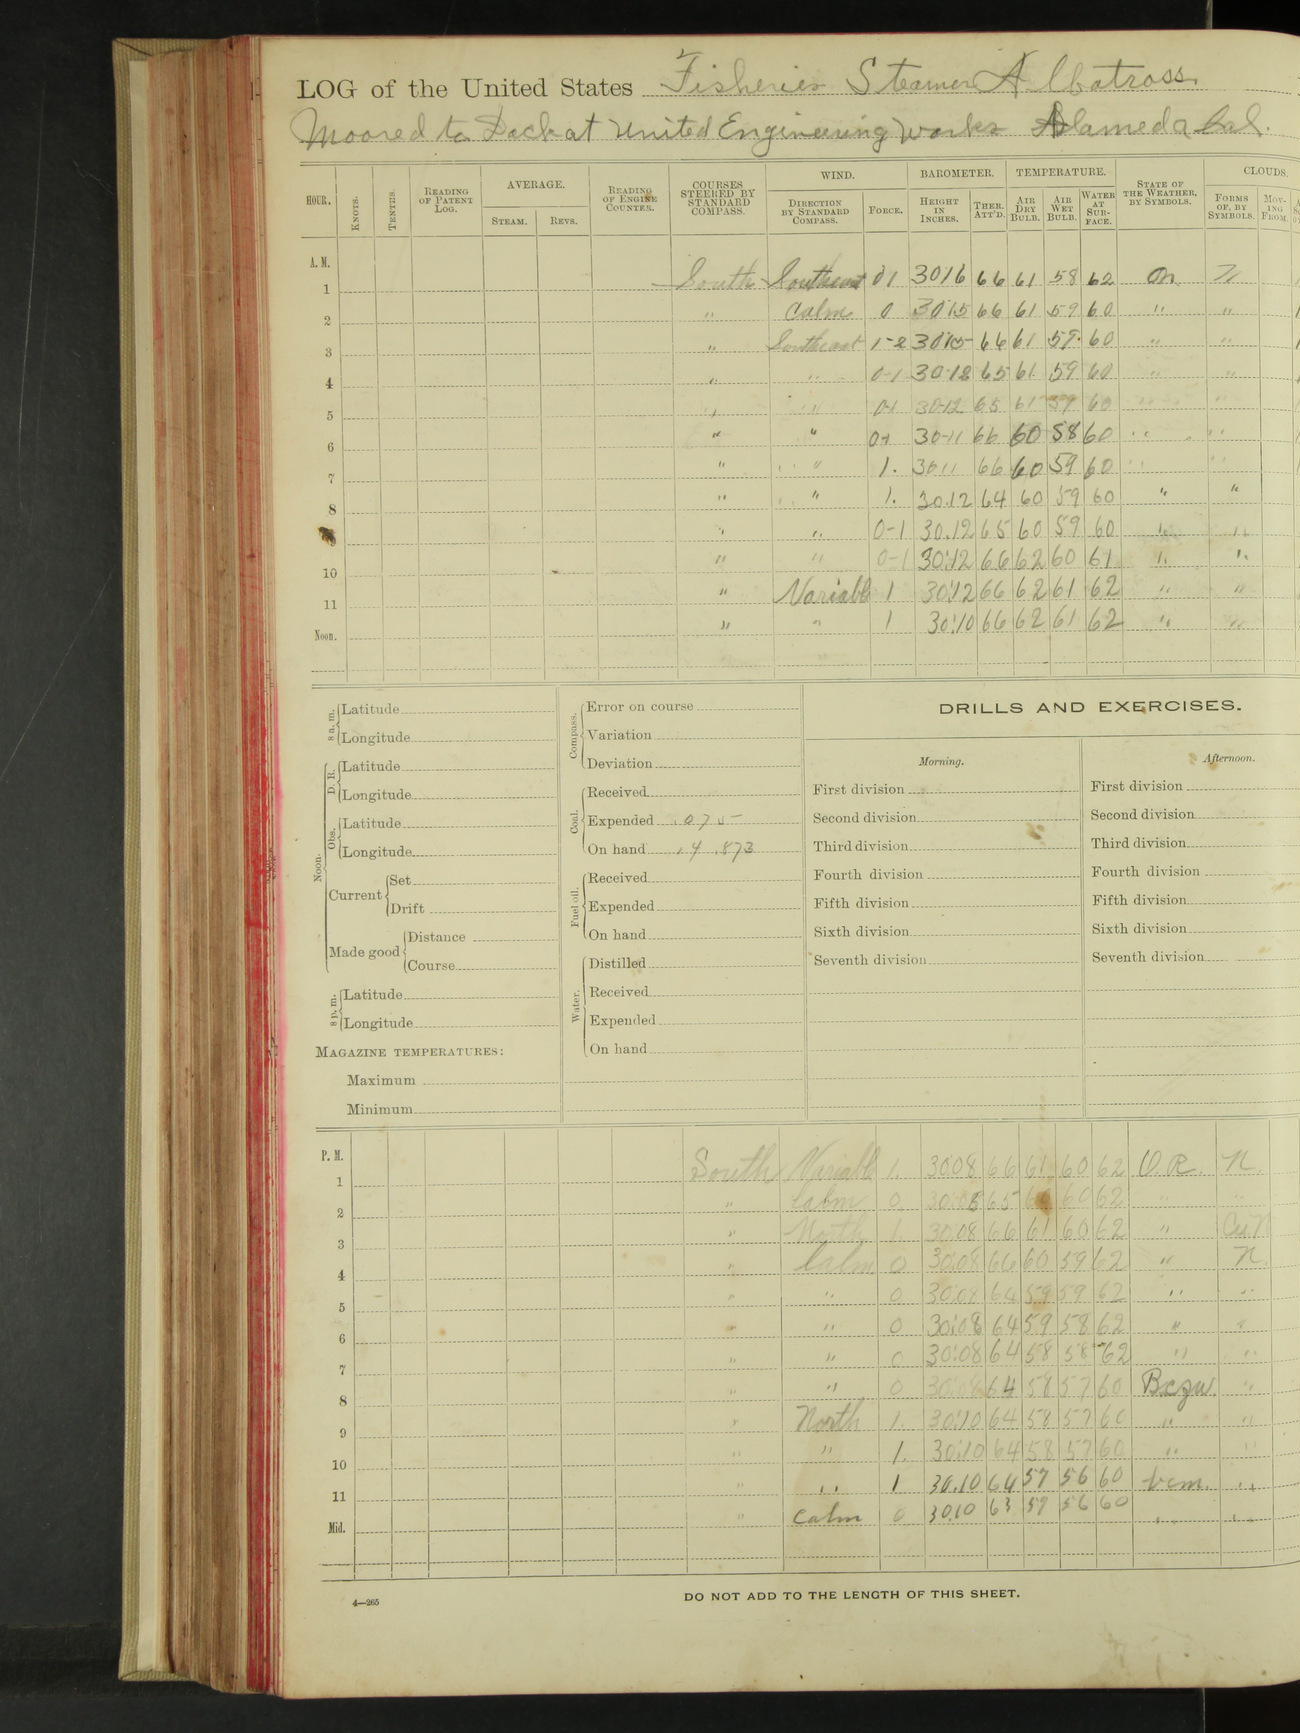 LOG of the United States Fisheries Steamer Albatross.
Moored to Dock at United Engineering Works Alameda Cal.
HOUR. KNOTS. TENTHS. READING OF PATENT LOG. AVERAGE. STEAM. REVS. READING OF ENGINE COUNTER. COURSES STEERED BY STANDARD COMPASS. WIND. DIRECTION BY STANDARD COMPASS. FORCE. BAROMETER. HEIGHT IN INCHES. THER. ATT'D. TEMPERATURE. AIR DRY BULB. AIR WET BULB. WATER AT SURFACE. STATE OF THE WEATHER, BY SYMBOLS. CLOUDS. FORMS OF, BY SYMBOLS. MOVING FROM.
A. M.
1 South Southeast 01 3016 66 61 58 62
2 " Calm 0 30.15 66 61 59 60 " "
3 " Southeast 1-2 30.15 66 61 59 60 " "
4 " " 0-1 30.12 65 61 59 60 " "
5 " " 0-1 30.12 65 61 59 60 " "
6 " " 0-1 30.11 66 60 58 60 " "
7 " " 1. 30.11 66 60 59 60 " "
8 " " 1. 30.12 64 60 59 60 " "
" " 0-1 30.12 65 60 59 60 " "
10 " " 0-1 30.12 66 62 60 61 " "
11 " Variable 1 30.12 66 62 61 62 " "
Noon. " " 1 30.10 66 62 61 62 " "
8 a. m. Latitude
Longitude
Noon. D. R. Latitude
Longitude
Obs. Latitude
Longitude
Current Set
Drift
Made good Distance
Course
8 p. m. Latitude
Longitude
MAGAZINE TEMPERATURES:
Maximum
Minimum
Compass. Error on course
Variation
Deviation
Coal. Received
Expended .075
On hand .4 .873
Fuel oil. Received
Expended
On hand
Water. Distilled
Received
Expended
On hand
DRILLS AND EXERCISES.
Morning.
First division
Second division
Third division
Fourth division
Fifth division
Sixth division
Seventh division
Afternoon.
First division
Second division
Third division
Fourth division
Fifth division
Sixth division
Seventh division
P. M.
1 South Variable 1. 30.08 66 61 60 62 O.R. N.
2 " Calm 0 30.08 65 60 60 62 " "
3 " North 1. 30.08 66 61 60 62 " Cu.N
4 " Calm 0 30.08 66 60 59 62 " N.
5 " " 0 30.08 64 59 59 62 " "
6 " " 0 30.08 64 59 58 62 " "
7 " " 0 30.08 64 58 58 62 " "
8 " " 0 30.08 64 58 57 60 "
9 " North 1. 30.10 64 58 57 60 " "
10 " " 1. 30.10 64 58 57 60 " "
11 " " 1 30.10 64 57 56 60 bcm. "
Mid. " Calm 0 30.10 63 57 56 60 " "
4—265
DO NOT ADD TO THE LENGTH OF THIS SHEET.